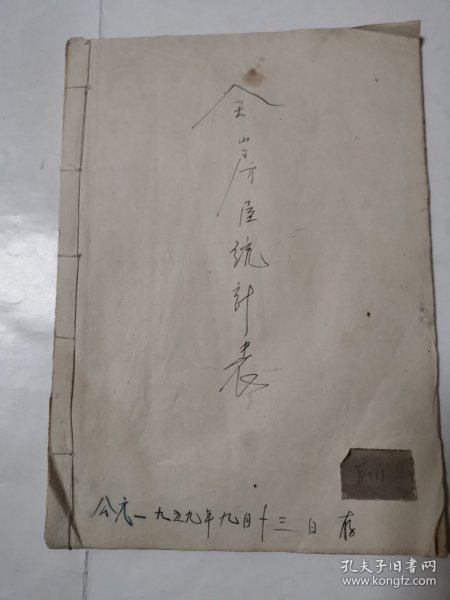 全山房屋統計表
公元一九五九年九月十三日 存
孔夫子旧书网
www.kongfz.com